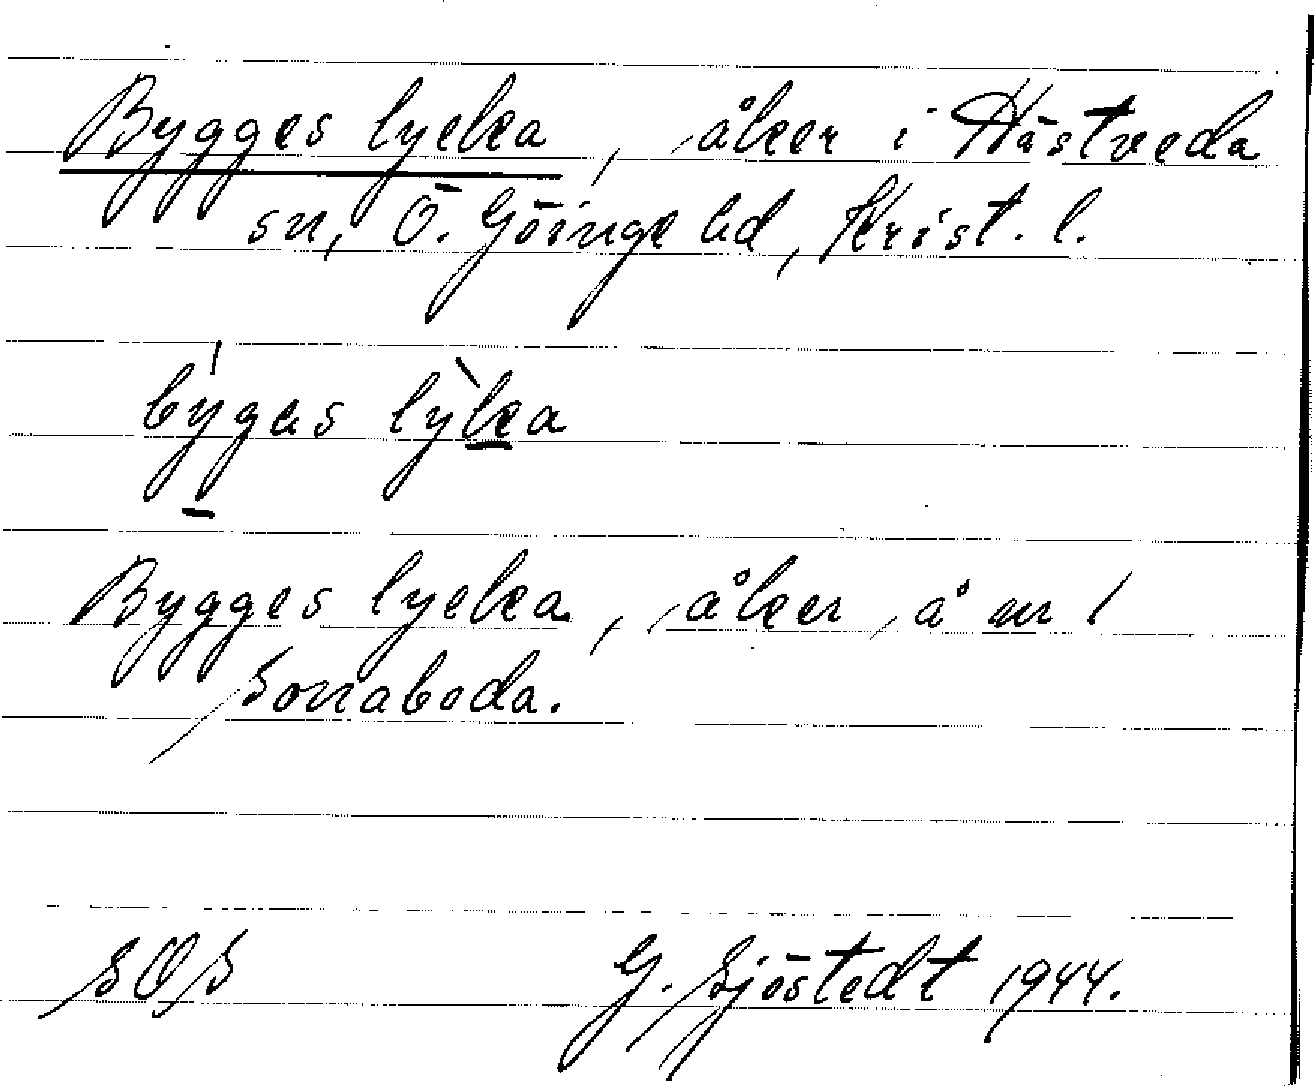 Bygges lycka, åker i Hästveda
sn, Ö. Göinge hd, Krist. l.
býgas lỳka
Bygges lycka, åker å nr 1
Sorraboda.
SOS G. Sjöstedt 1944.